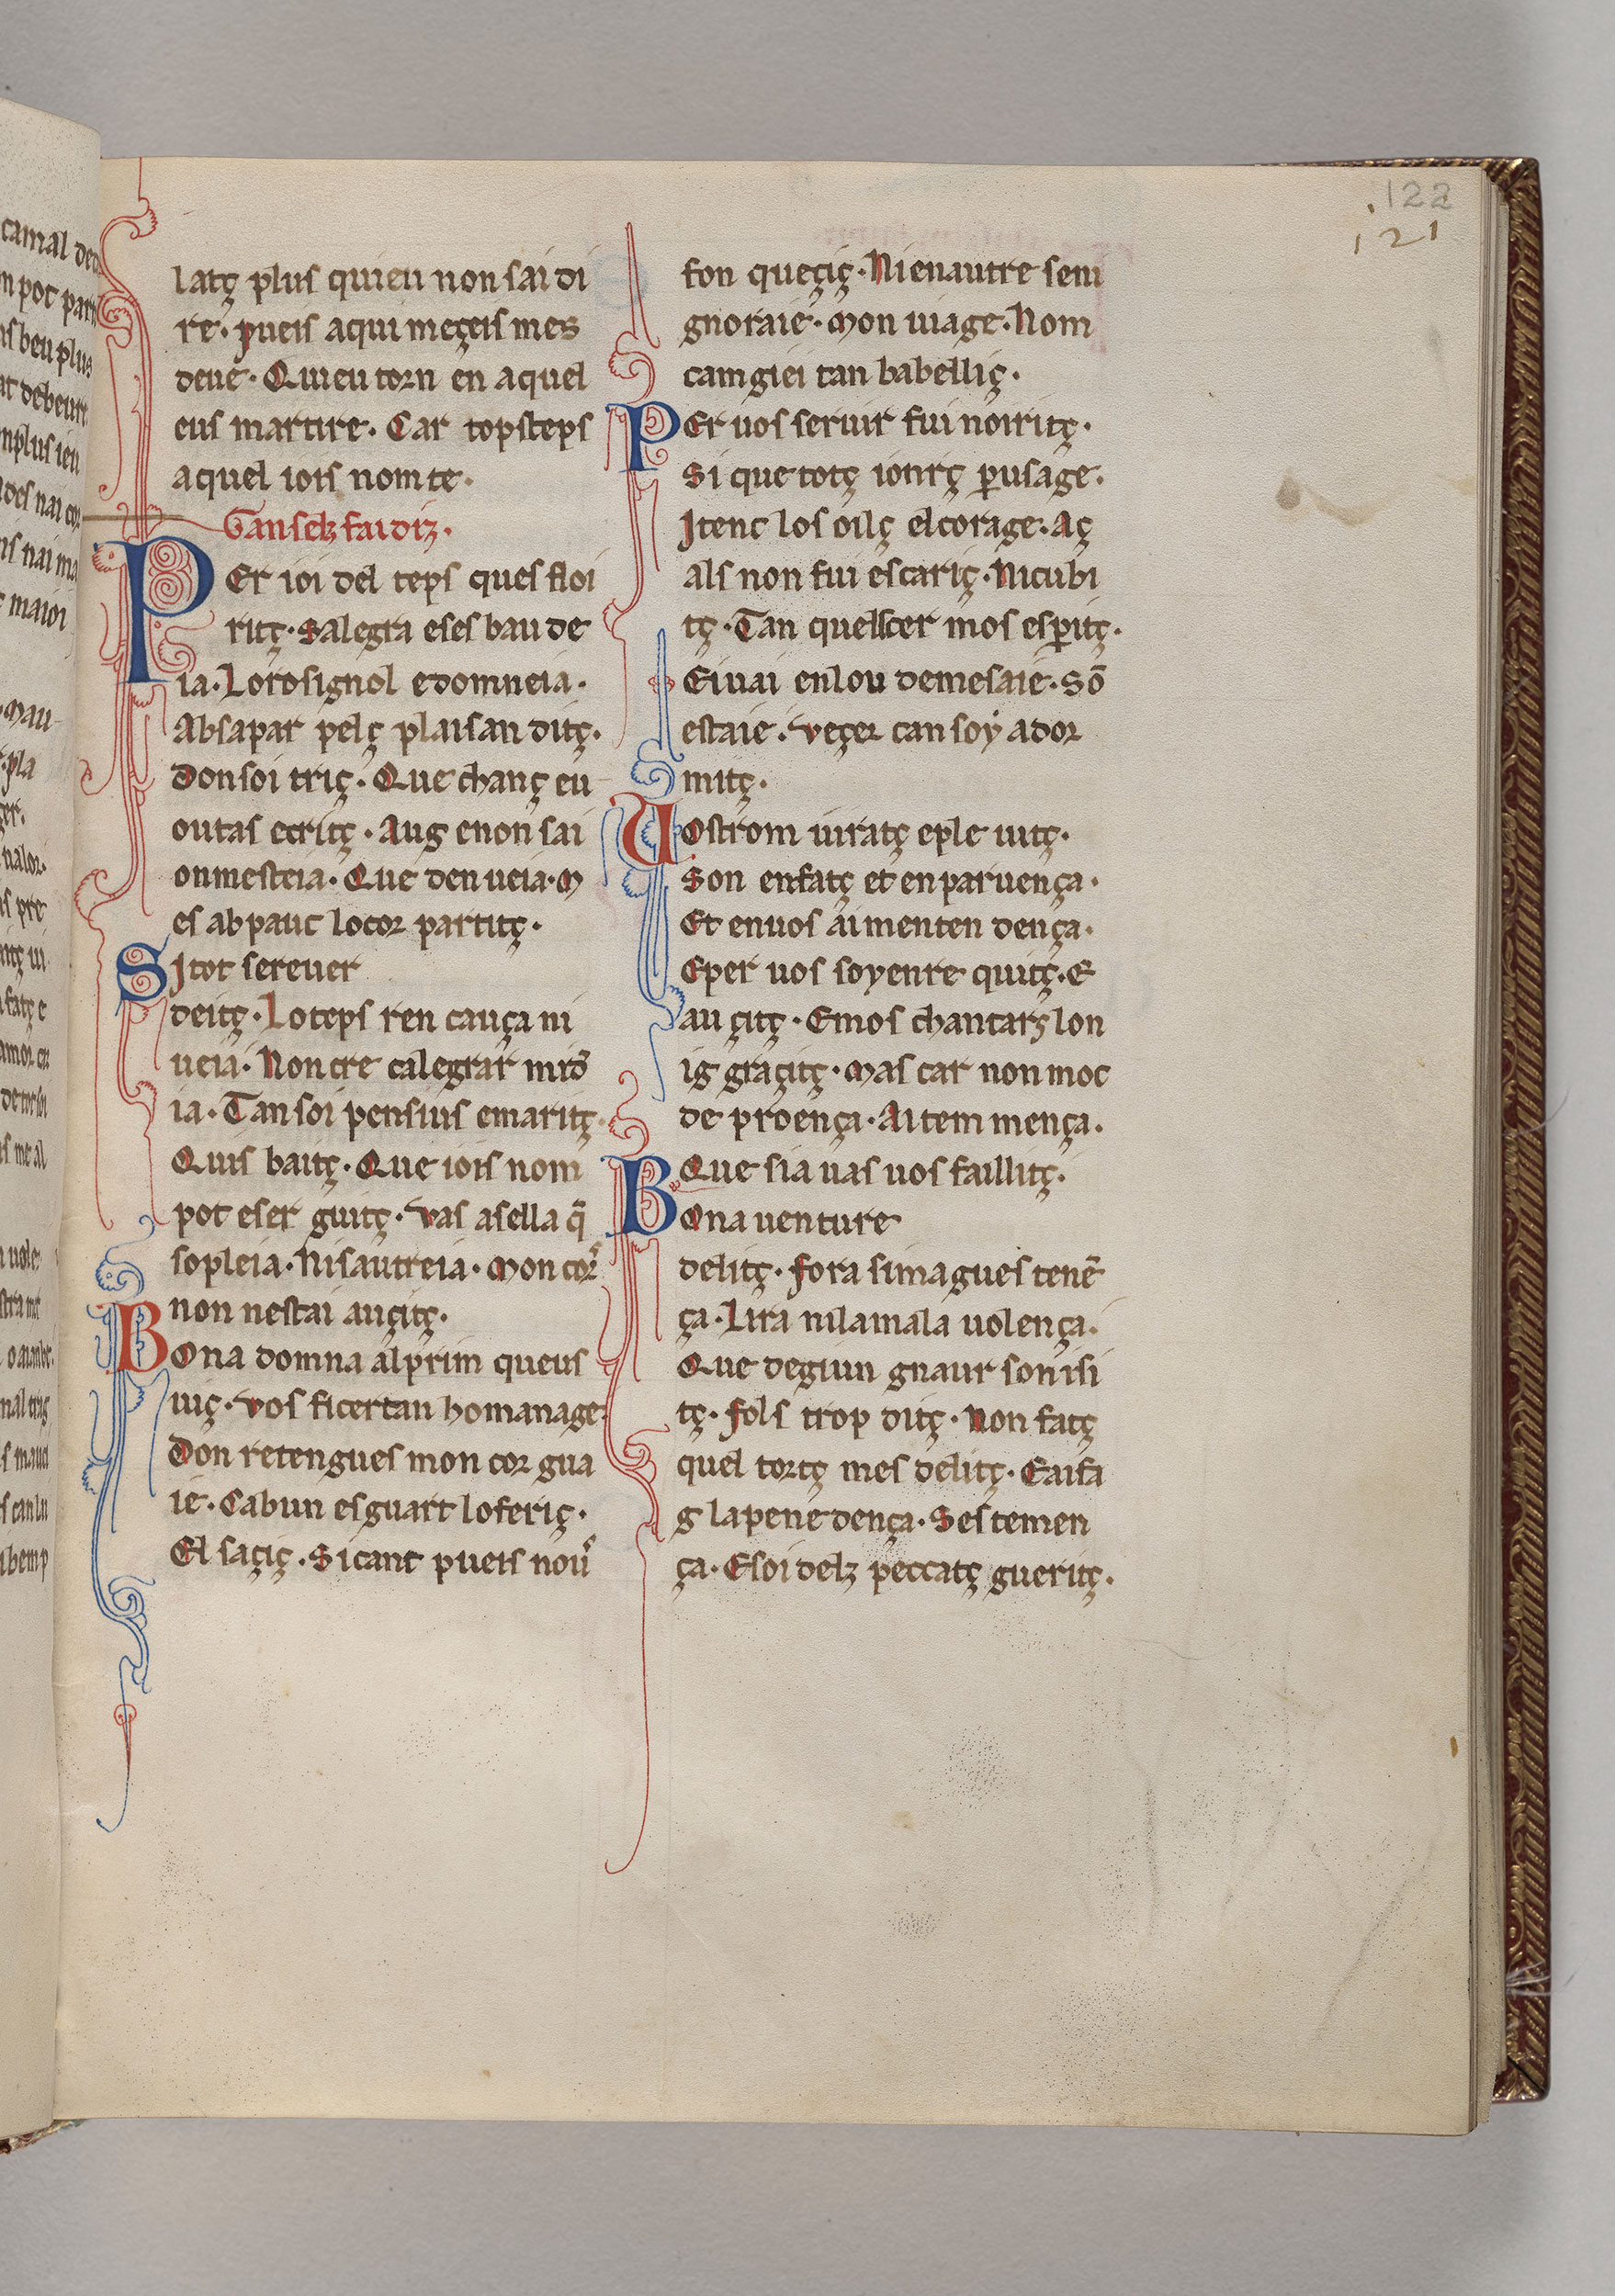 122
121
latç plus quieu non sai di
re. pueis aqui meçeis mes
deue. Quieu torn en aquel
eus martire. Car topsteps
aquel iois nomte.
Ganselz faidiz.
Per ioi del teps ques floi
ritç. Salegra eses baude
ia. Lorosignol edomneia.
Absapar pelç plaisan ditç.
Donsoi triç. Que chanç eu
outas ecritç. Aug enon sai
onmesteia. Que den ueia. M
es abpauc locor partitç.
Sitot sereuer
deitç. Loteps ren cauça ni
ueia. Noncre calegrar mid
ia. Tansoi pensius emaritç.
Quis baitç. Que iois nom
pot eser guitç. Vas asella q̃
sopleia. Nisautreia. Mon cor
non nestai auçitç.
Bona domna alprim queus
uiç. Vos ficertan homanage.
Don retengues mon cor gua
ie. Cabun esguart loferiç.
El saçiç. Sicant pueis nou
fon queçiç. Nienautre seni
gnoraie. Mon uiage. Nom
camgiei tan babelliç.
Per uos seruir fui noiritç.
Si que totç iornç ꝑusage.
Itenc los oilç elcorage. Aç
als non fui escariç. Nicubi
tç. Tan quellcer mos esꝑitç.
Eiuai enlou demesaie. Sõ
estaie. Veçer can soy ador
mitç.
Uostrom iuratç eple uitç.
Son enfatç et enparuença.
Et enuos ai menten dença.
Eper uos soyenre quitç. E
au çitç. Emos chantarç lon
ig graçitç. Mas car non moc
de proença. Aitem mença.
Que sia uas uos faillitç.
Bona uenture
delitç. Fora simagues tenẽ
ça. Lira nilamala uolença.
Que degiun gnaur son isi
tç. Fols trop ditç. Non fatç
quel tortç mes delitç. Eaifa
g lapene dença. Ses temen
ça. Esoi delz peccatç gueritç.